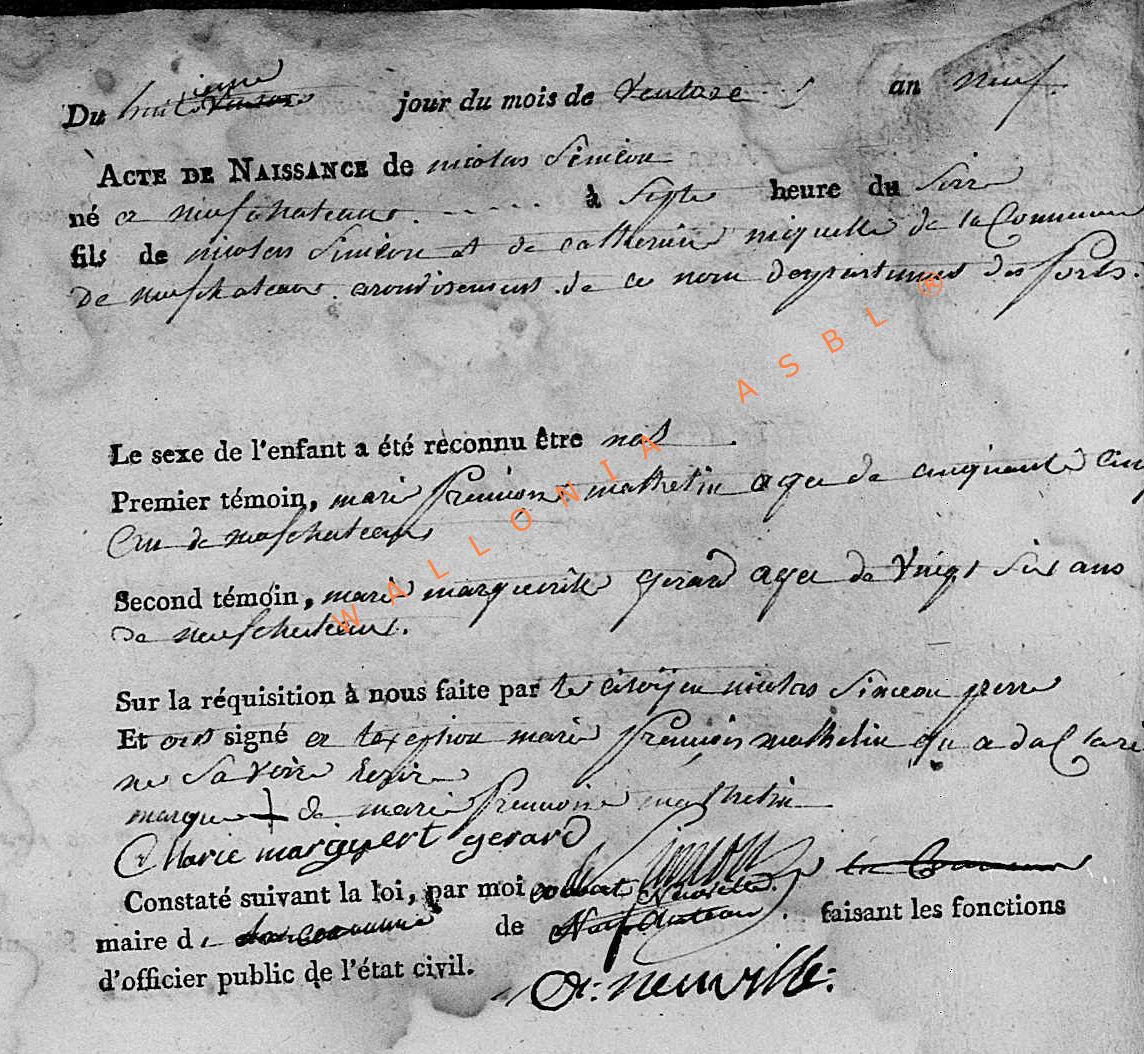 Du huitieme jour du mois de Ventose an neuf
ACTE DE NAISSANCE de nicolas Simeon
né a neufchateaux à Septe heure du Soire
fils de nicolas Simeon et de catherine niquelle de la Commune
de neufchateaux arondisement de ce nom departement des forets
Le sexe de l'enfant a été reconnu être mal
Premier témoin, marie frencoise mathelin agee de cinquante cinq
de neufchateaux
Second témoin, marie marguerite gerard agee de vingt six ans
de neufchateaux.
Sur la réquisition à nous faite par le citoijen nicolas Simeon perre
Et ont signé a lexeption marie frencoise mathelin qui a daclare
ne Savoire Ecrire
marque + de marie frencoise mathelin
Marie margueert gerard Simon
Constaté suivant la loi, par moi
maire de de Neufchateau faisant les fonctions
d'officier public de l'état civil.
neuville
WALLONIA ASBL ®